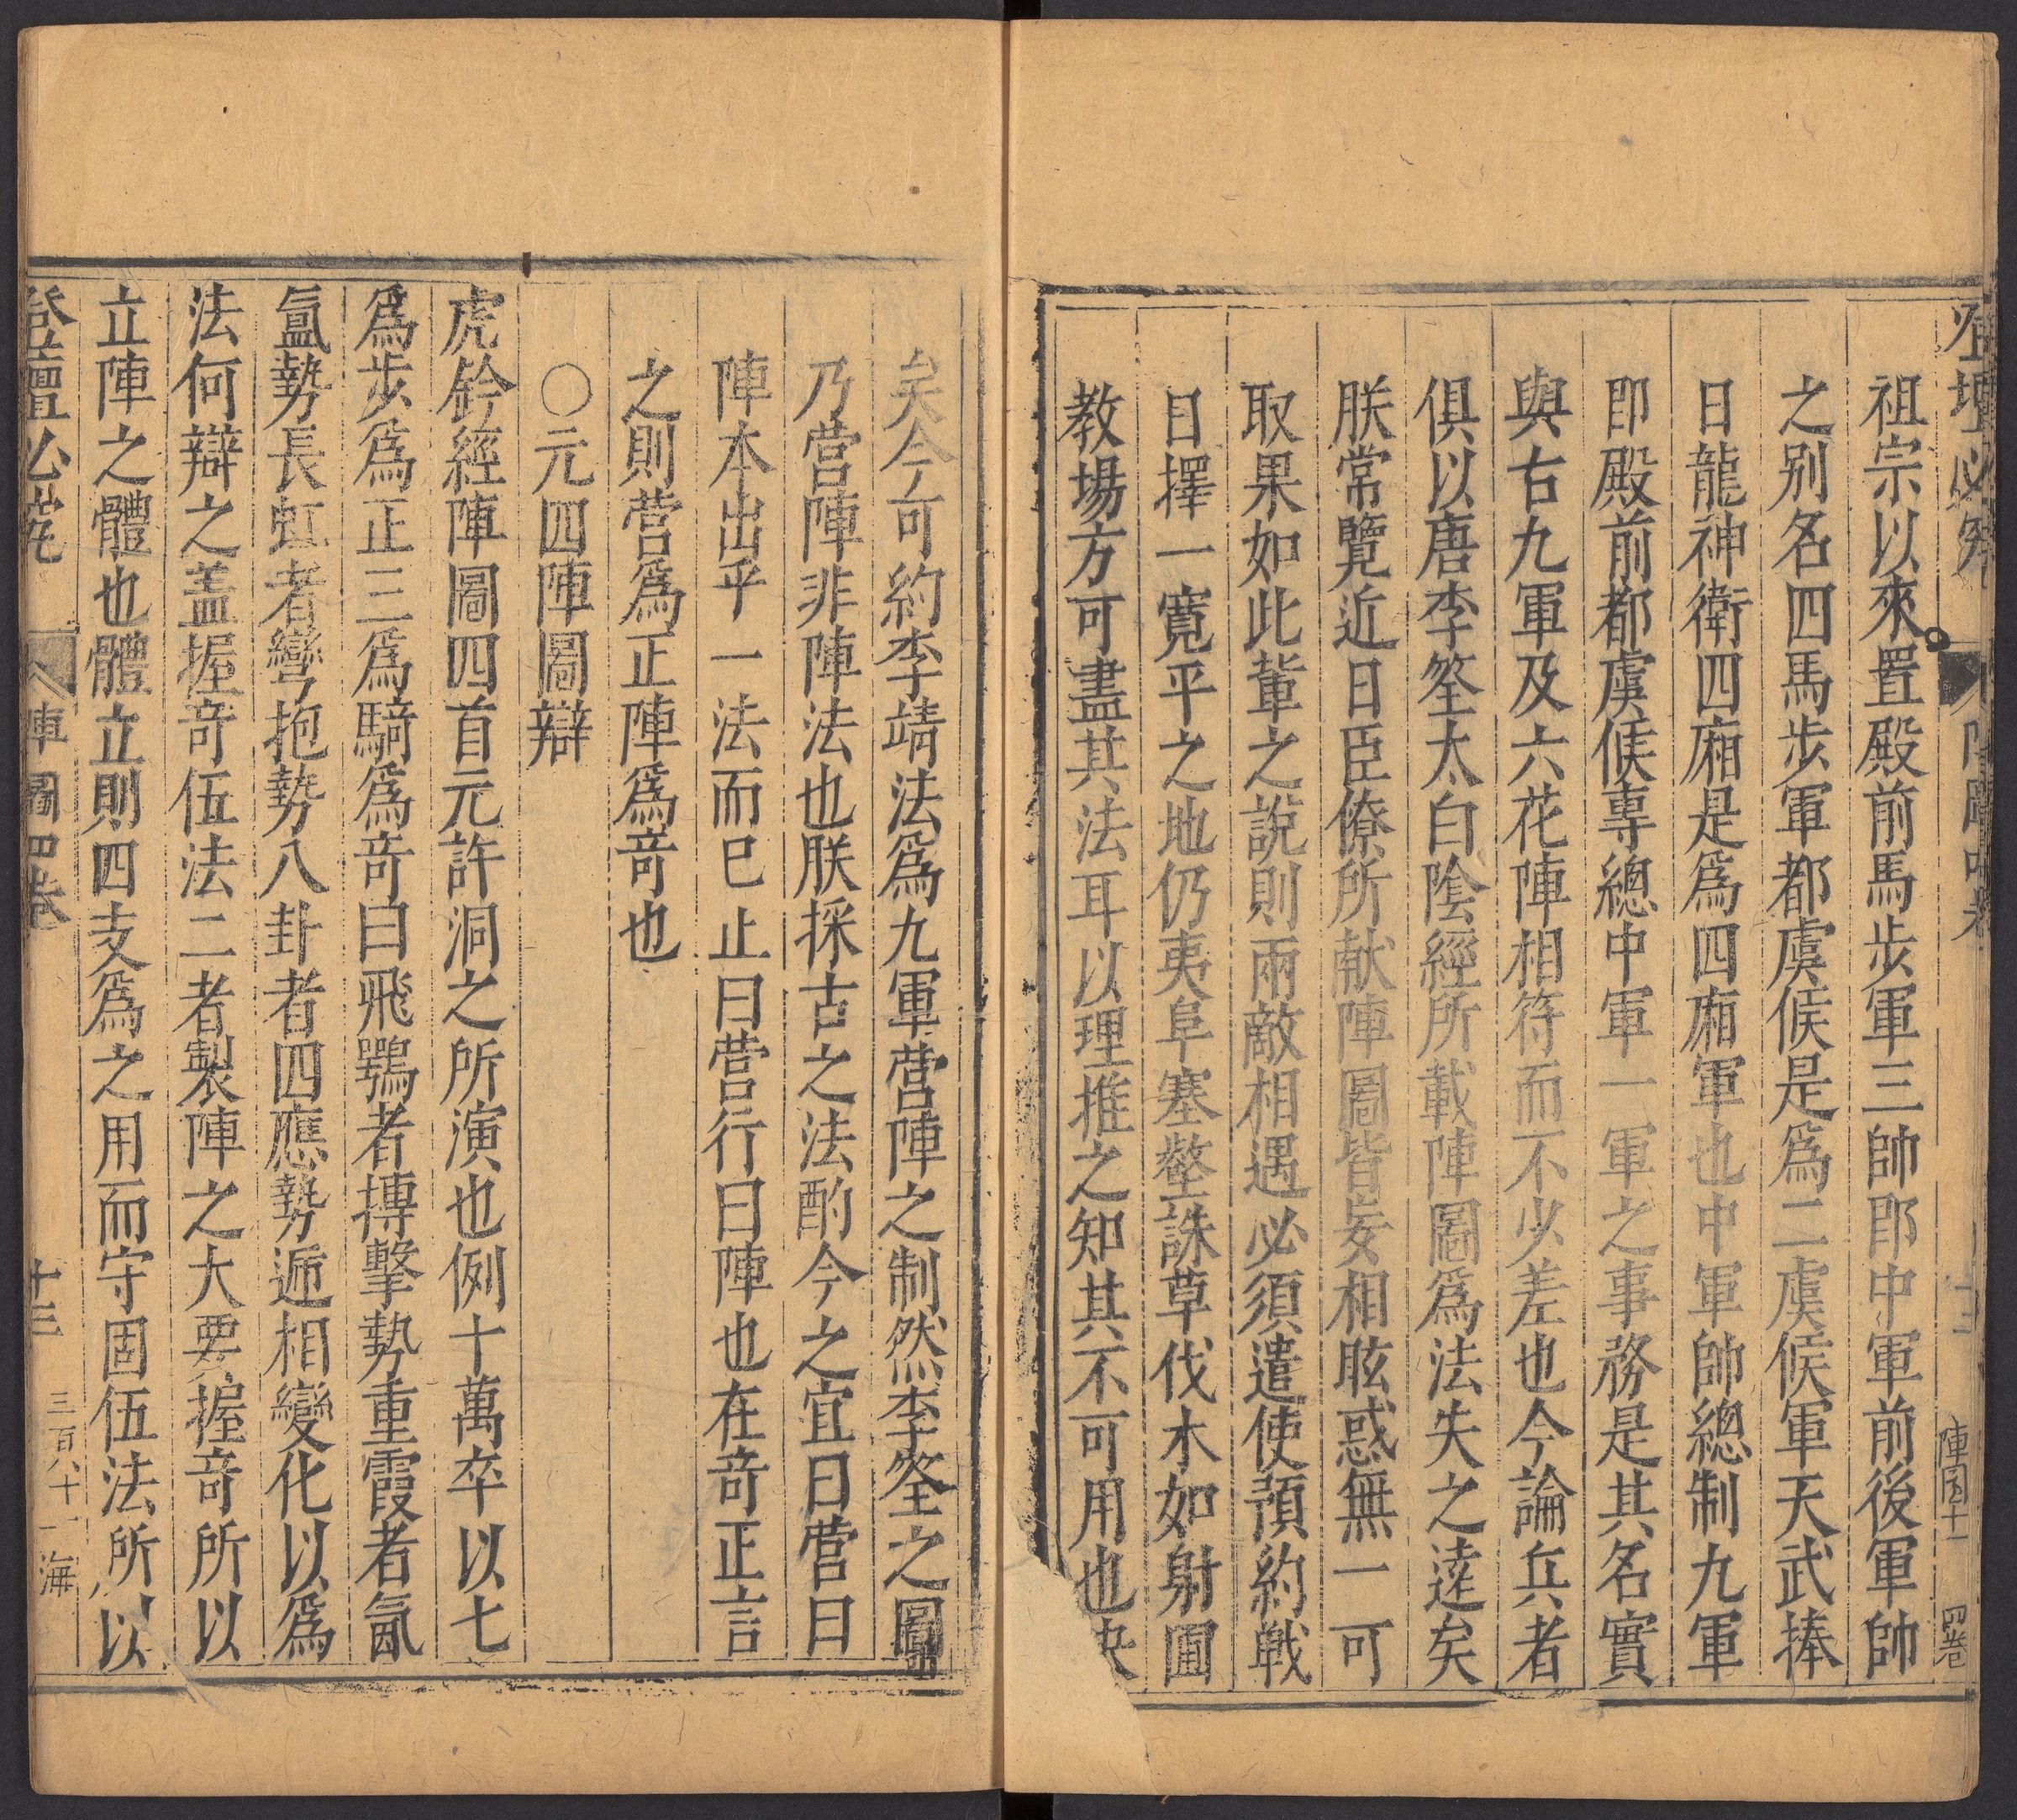 祖宗以來置殿前馬步軍三帥即中軍前後軍帥
之别名四馬步軍都虞候是爲二虞候軍天武捧
日龍神衛四廂是爲四廂軍也中軍帥總制九軍
即殿前都虞候專總中軍一軍之事務是其名實
與古九軍及六花陣相符而不少差也今論兵者
俱以唐李筌太白陰經所載陣圖爲法失之逺矣
朕常覽近日臣僚所献陣圖皆妄相眩惑無一可
取果如此軰之說則兩敵相遇必須遣使預約戦
日擇一寛平之地仍夷阜塞壑誅草伐木如射圃
教塲方可盡其法耳以理推之知其不可用也决
矣今可約李靖法爲九軍營陣之制然李筌之圖
乃營陣非陣法也朕採古之法酌今之宜曰營曰
陣本出乎一法而已止曰營行曰陣也在奇正言
之則营爲正陣爲竒也
○元四陣圖辯
虎鈐經陣圖四首元許洞之所演也例十萬卒以七
爲步爲正三爲騎爲竒曰飛鶚者摶擊勢重霞者氤
氳勢長虹者彎抱勢八卦者四應勢遞相變化以爲
法何辯之盖握竒伍法二者製陣之大要握竒所以
立陣之體也體立則四支爲之用而守固伍法所以
登壇必究 陣圖四卷 十三 三百八十一 海
陣圖十一 四卷